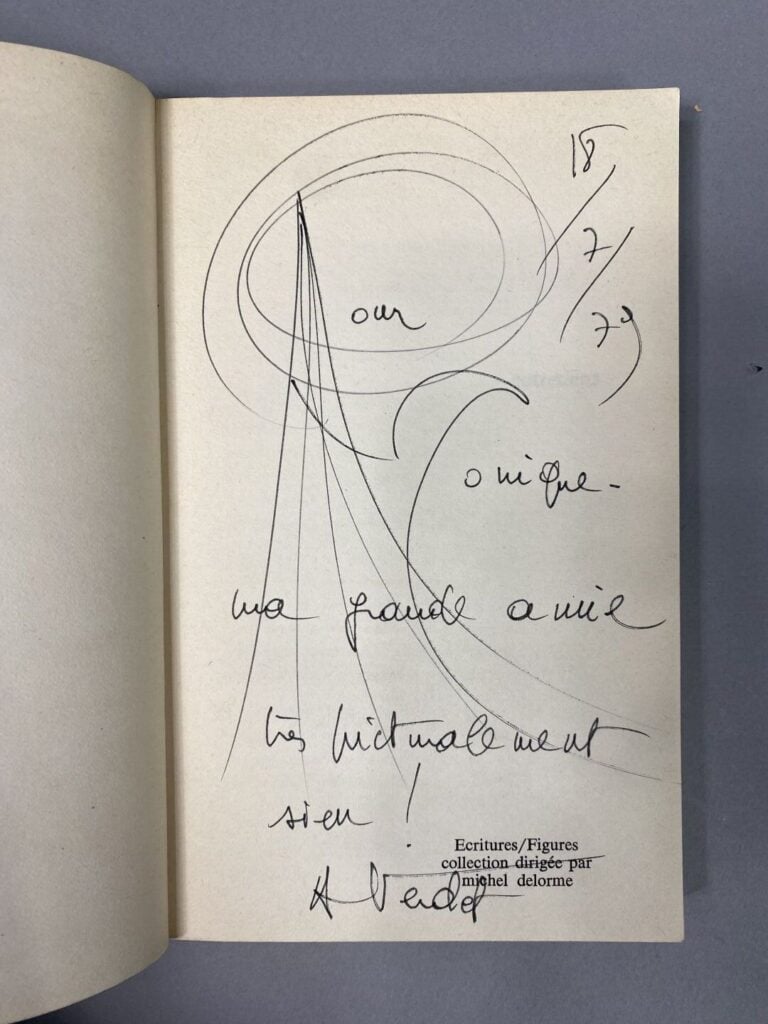 18/7/79
Pour
Monique -
ma grande amie
très picturalement
sien !
A Verdet
Ecritures/Figures
collection dirigée par
michel delorme